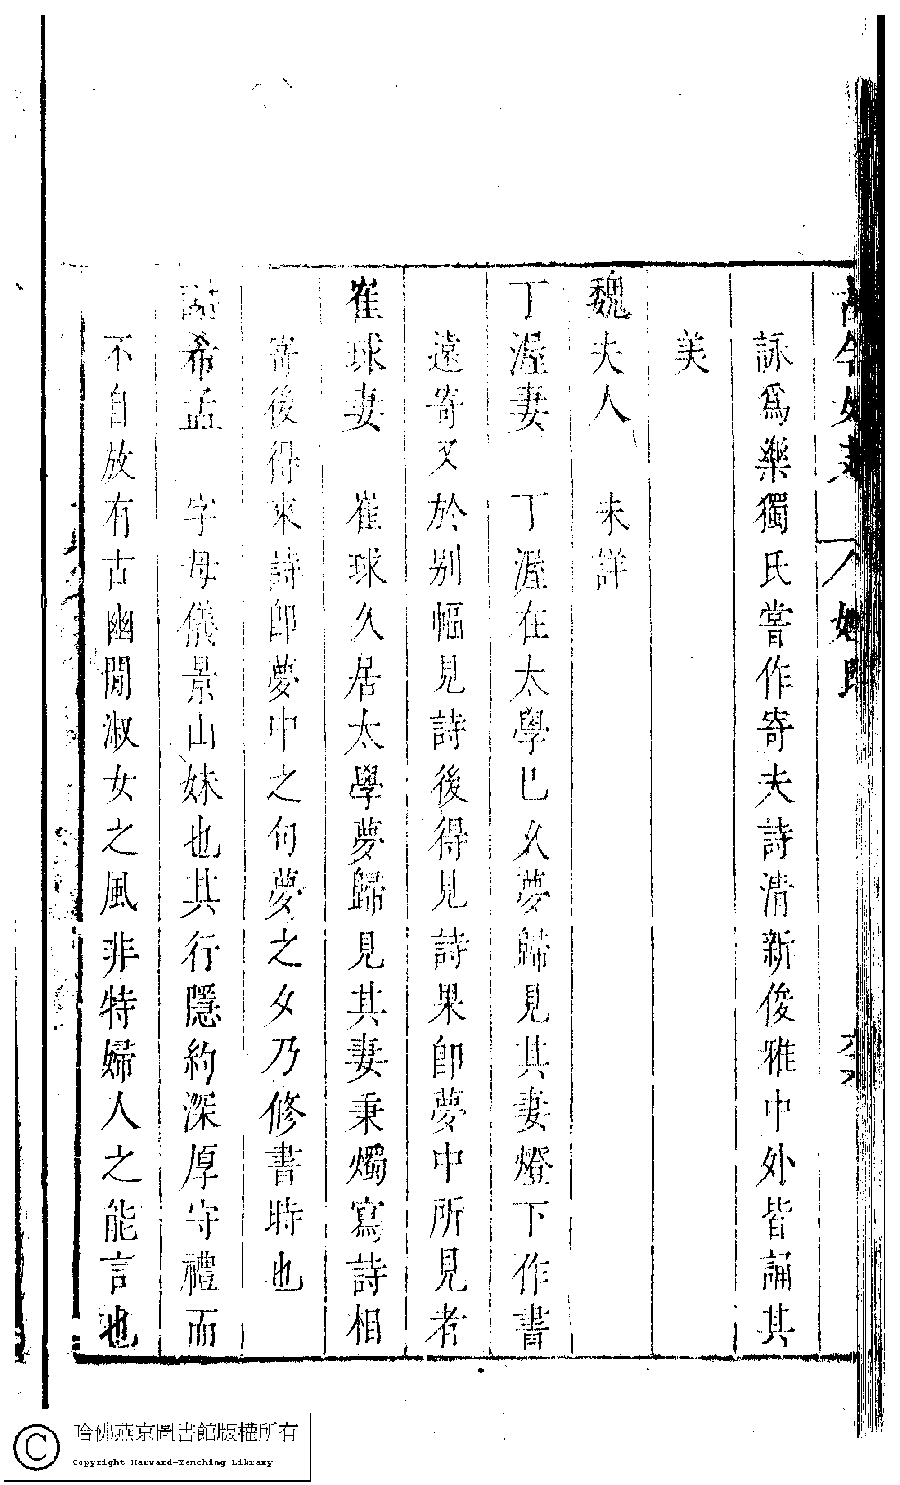 詠爲樂獨氏嘗作寄夫詩清新俊雅中外皆誦其
美
魏夫人　未詳
丁渥妻　丁渥在太學已久夢歸見其妻燈下作書
遠寄又於别幅見詩後得見詩果卽夢中所見者
崔球妻　崔球久居太學夢歸見其妻秉燭寫詩相
寄後得來詩卽夢中之句夢之夕乃修書時也
希孟　字母儀景山妹也其行隱約深厚守禮而
不自放有古幽閒淑女之風非特婦人之能言也
哈佛燕京圖書館版權所有
Copyright Harvard-Yenching Library